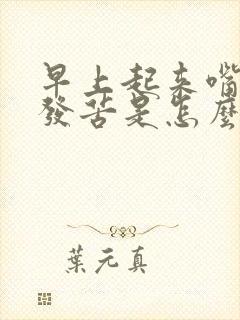 早上起来嘴
發苦是怎麼
葉元真